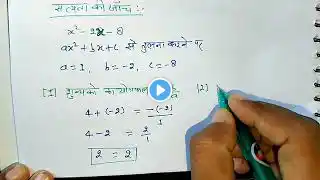 सत्यता की जाँच :-
x² - 2x - 8
ax² + bx + c से तुलना करने पर
a = 1, b = -2, c = -8
[1] शून्यकों का योगफल = -b/a [2]
4 + (-2) = -(-2)/1
4 - 2 = 2/1
2 = 2